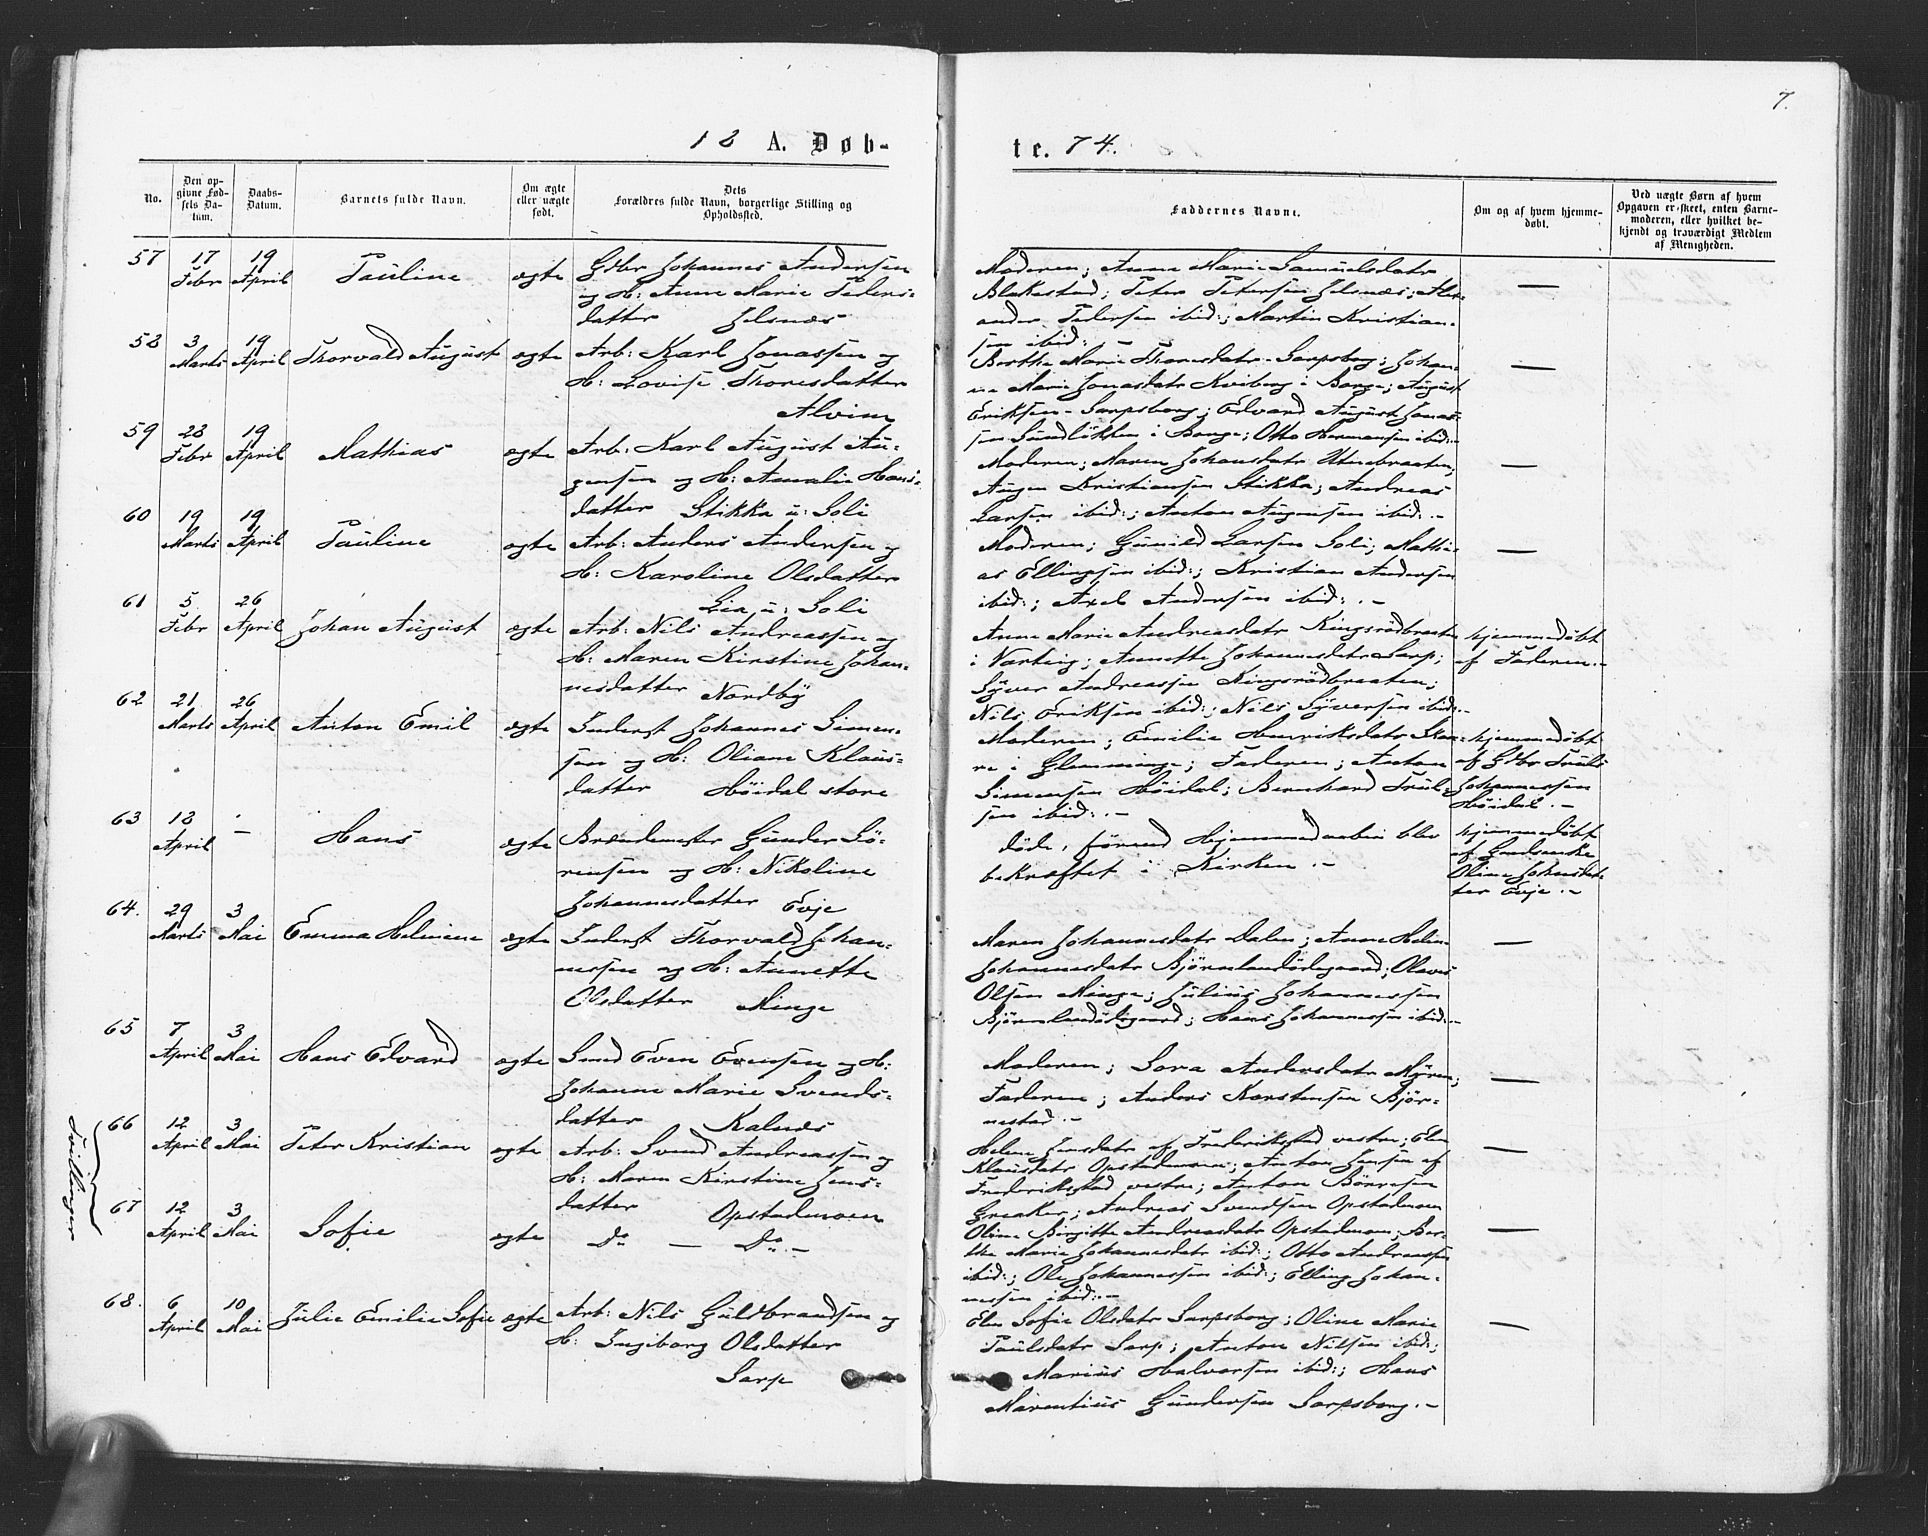 7.
18 A. Døb-
te. 74.
No.
Den op-
givne Fød-
sels Da-
tum.
Daabs-
Datum.
Barnets fulde Navn.
Om ægte
eller uægte
født.
Dets
Forældres fulde Navn, borgerlige Stilling og
Opholdssted.
Faddernes Navne.
Om og af hvem hjemme-
døbt.
Ved uægte Børn af hvem
Opgaven er skeet, enten Barne-
moderen, eller hvilket be-
kjendt og troværdigt Medlem
af Menigheden.
57 17 Febr 19 April Pauline ægte Gdbr Johannes Andersen
og H: Anne Marie Peders-
datter Jelsnæs
Moderen; Anne Marie Samuelsdatr
Blakestad; Peter Petersen Jelsnæs; Alex-
ander Pedersen ibid:; Martin Kristian-
sen ibid: -
58 3 Marts 19 April Thorvald August ægte Arb: Karl Jonassen og
H: Lovise Thoresdatter
Alvim
Berthe Marie Thoresdatr Sarpsborg; Johan-
ne Marie Jonasdatr Kviberg i Borge; August
Eriksen - Sarpsborg; Edvard August Jonas-
sen Sundløkken i Borge; Otto Hermansen ibid: -
59 28 Febr 19 April Mathias ægte Arb: Karl August Au-
gensen og H: Amalie Hans-
datter Stikka u: Soli
Moderen; Maren Johansdatr Utnebraaten;
Augen Kristiansen Stikka; Andreas
Larsen ibid:; Anton Augensen ibid: -
60 19 Marts 19 April Pauline ægte Arb: Anders Andersen og
H: Karoline Olsdatter
Lia u: Soli
Moderen; Gunild Larsen Soli; Mathi-
as Ellingsen ibid:; Kristian Andersen
ibid:; Axel Andersen ibid: . -
61 5 Febr 26 April Johan August ægte Arb: Nils Andreassen og
H: Maren Kirstine Johan-
nesdatter Nordby
Anne Marie Andreasdatr Kingsrødbraaten
i Varteig; Annette Johannesdatr Sarp;
Syver Andreassen Kingsrødbraaten;
Nils Eriksen ibid:; Nils Syversen ibid: -
hjemmedøbt
af Faderen. -
62 21 Marts 26 April Anton Emil ægte Inderst Johannes Simen-
sen og H: Oliane Klaus-
datter Høidal store
Moderen; Emilie Henriksdatr Skaa-
re i Glemminge; Faderen; Anton
Simensen Høidal; Bernhard Trul-
sen ibid: . -
hjemmedøbt
af Gdbr Truls
Johannessen
Høidal. -
63 18 April - Hans ægte Brændemester Gunder Sø-
rensen og H: Nikoline
Johannesdatter Evje
døde, førend Hjemmedaaben blev
bekræftet i Kirken . -
hjemmedøbt
af Grndsenske
Oline Johansdat-
ter Evje. -
64. 29 Marts 3 Mai Emma Helmine ægte Inderst Thorvald Johan-
nessen og H: Annette
Olsdatter Minge
Maren Johannesdatr Dalen; Anne Helene
Johannesdatr Bjørnlandødegaard; Olaves
Olsen Minge; Julius Johannessen
Bjørnlandødegaard; Hans Johannessen ibid: -
65 7 April 3 Mai Hans Edvard ægte Smed Even Evensen og H:
Johanne Marie Svends-
datter Kalnæs
Moderen; Sara Andersdatr Myren;
Faderen; Anders Karstensen Bjør-
nestad. -
Tvillinger
66 12 April 3 Mai Peter Kristian ægte Arb: Svend Andreassen og
H: Maren Kirstine Jens-
datter Opstadmoen
Helene Jensdatr af Frederiksstad vestre; Elen
Klausdatr Opstadmoen; Anton Jensen af
Frederiksstad vestre; Anton Børresen
Greaker; Andreas Svendsen Opstadmoen
67 12 April 3 Mai Sofie ægte Do - Do. -
Oline Birgitte Andreasdatr Opstadmoen; Ber-
the Marie Johannesdatr ibid:; Otto Andreassen
ibid:; Ole Johannessen ibid:; Elling Johan-
nessen ibid: -
68. 6 April 10 Mai Julie Emilie Sofie ægte Arb: Nils Guldbrandsen og
H: Ingeborg Olsdatter
Sarp
Elen Sofie Olsdatr Sarpsborg; Oline Marie
Paulsdatr Sarp; Anton Nilsen ibid:;
Marius Halvorsen ibid:; Hans
Marentius Gundersen Sarpsborg. -